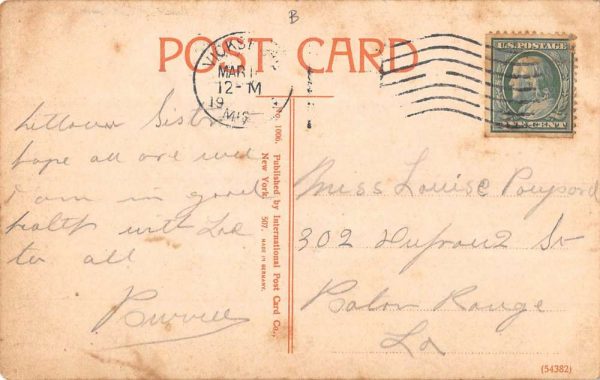 B
POST CARD
VICKSB
MAR 1
12-M
19
MIS
U.S. POSTAGE
ONE CENT
hope all are well
I am in good
health with Love
to all
Burrell
No. 1006. Published by International Post Card Co.,
New York. 507. MADE IN GERMANY.
Miss Louise
302 St
Baton Rouge
La
(54382)